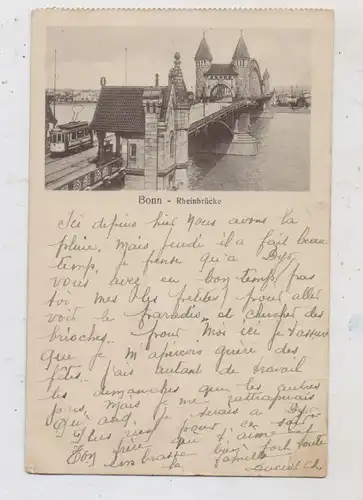 Bonn - Rheinbrücke
Ici depuis hier nous avons la
pluie, mais jeudi il a fait beau
temps, je pense qu'à
vous avez eu bon temps, pas
toi mes petites pour aller
voir le paradis et chercher des
brioches pour moi ici je t'assure
que je m'aperçois guère des
fêtes. J'ais autant de travail
les dimanches que les autres
jours mais je me rattraperais
Quand je serais à
Plus rien pour ce soir
Ton frère qui t'aime et
embrasse bien fort toute
la famille